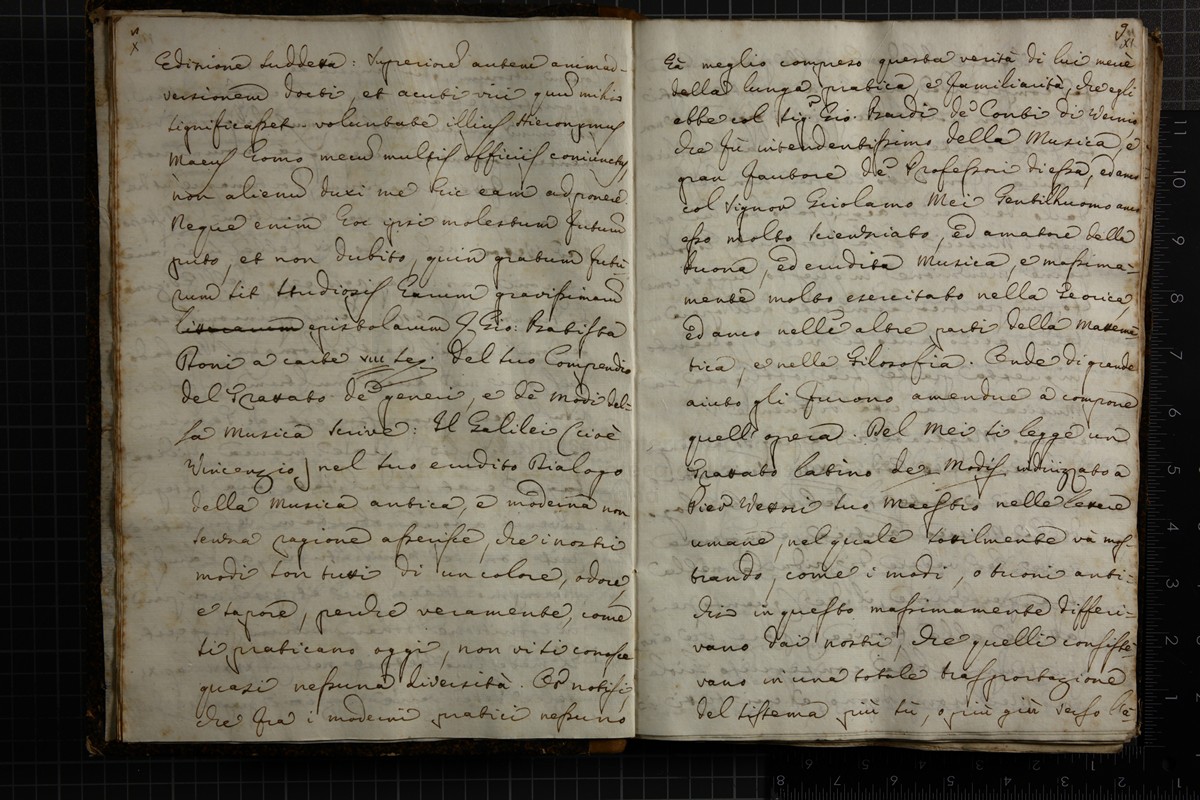 X
Edizione suddetta: Superiorē autem animad-
versionem docti, et acuti viri quū mihi
significasset voluntate illius Hieronymus
Maeus homo mecū multis officiis coniunctus,
non alienū duxi me hic eam adponere
Neque enim hoc ipsi molestum futurū
puto, et non dubito, quin gratum futu
rum sit studiosis harum gravissimarū
litterarum epistolarum Gio: Batista
Doni a carte VIII seg. del suo Compendio
del Trattato de' generi, e de' modi del-
la Musica scrive: Il Galilei (cioè
Vincenzio) nel suo erudito Dialogo
della Musica antica, e moderna non
senza ragione asserisce, che i nostri
modi son tutti di un colore, odore,
e sapore, perchè veramente, come
si praticano oggi, non vi si conosce
quasi nessuna diversità. Ed notisi,
che fra i moderni pratici nessuno
9
XI
ha meglio compreso questa verità di lui mercè
della lunga pratica, e familiarità, che egli
ebbe col Sigr Gio. Bardi de' Conti di Vernio,
che fù intendentissimo della Musica, e
gran fautore de' Professori di essa, ed anco
col Signor Girolamo Mei Gentilhuomo anco
esso molto scienziato, ed amatore della
buona, ed erudita Musica, e massima-
mente molto esercitato nella Teorica,
ed anco nelle altre parti della Matema
tica, e nella Filosofia. Onde di grande
aiuto gli furono amendue a comporre
quell' opera. Del Mei si legge un
Trattato latino de Modis indirizzato a
Pier Vettori suo Maestro nelle lettere
umane, nel quale sottilmente và mos-
trando, come i modi, o tuoni anti-
chi in questo massimamente differi-
vano dai nostri, che quelli consiste-
vano in una totale trasportazione
del sistema più sù, o più giù verso le